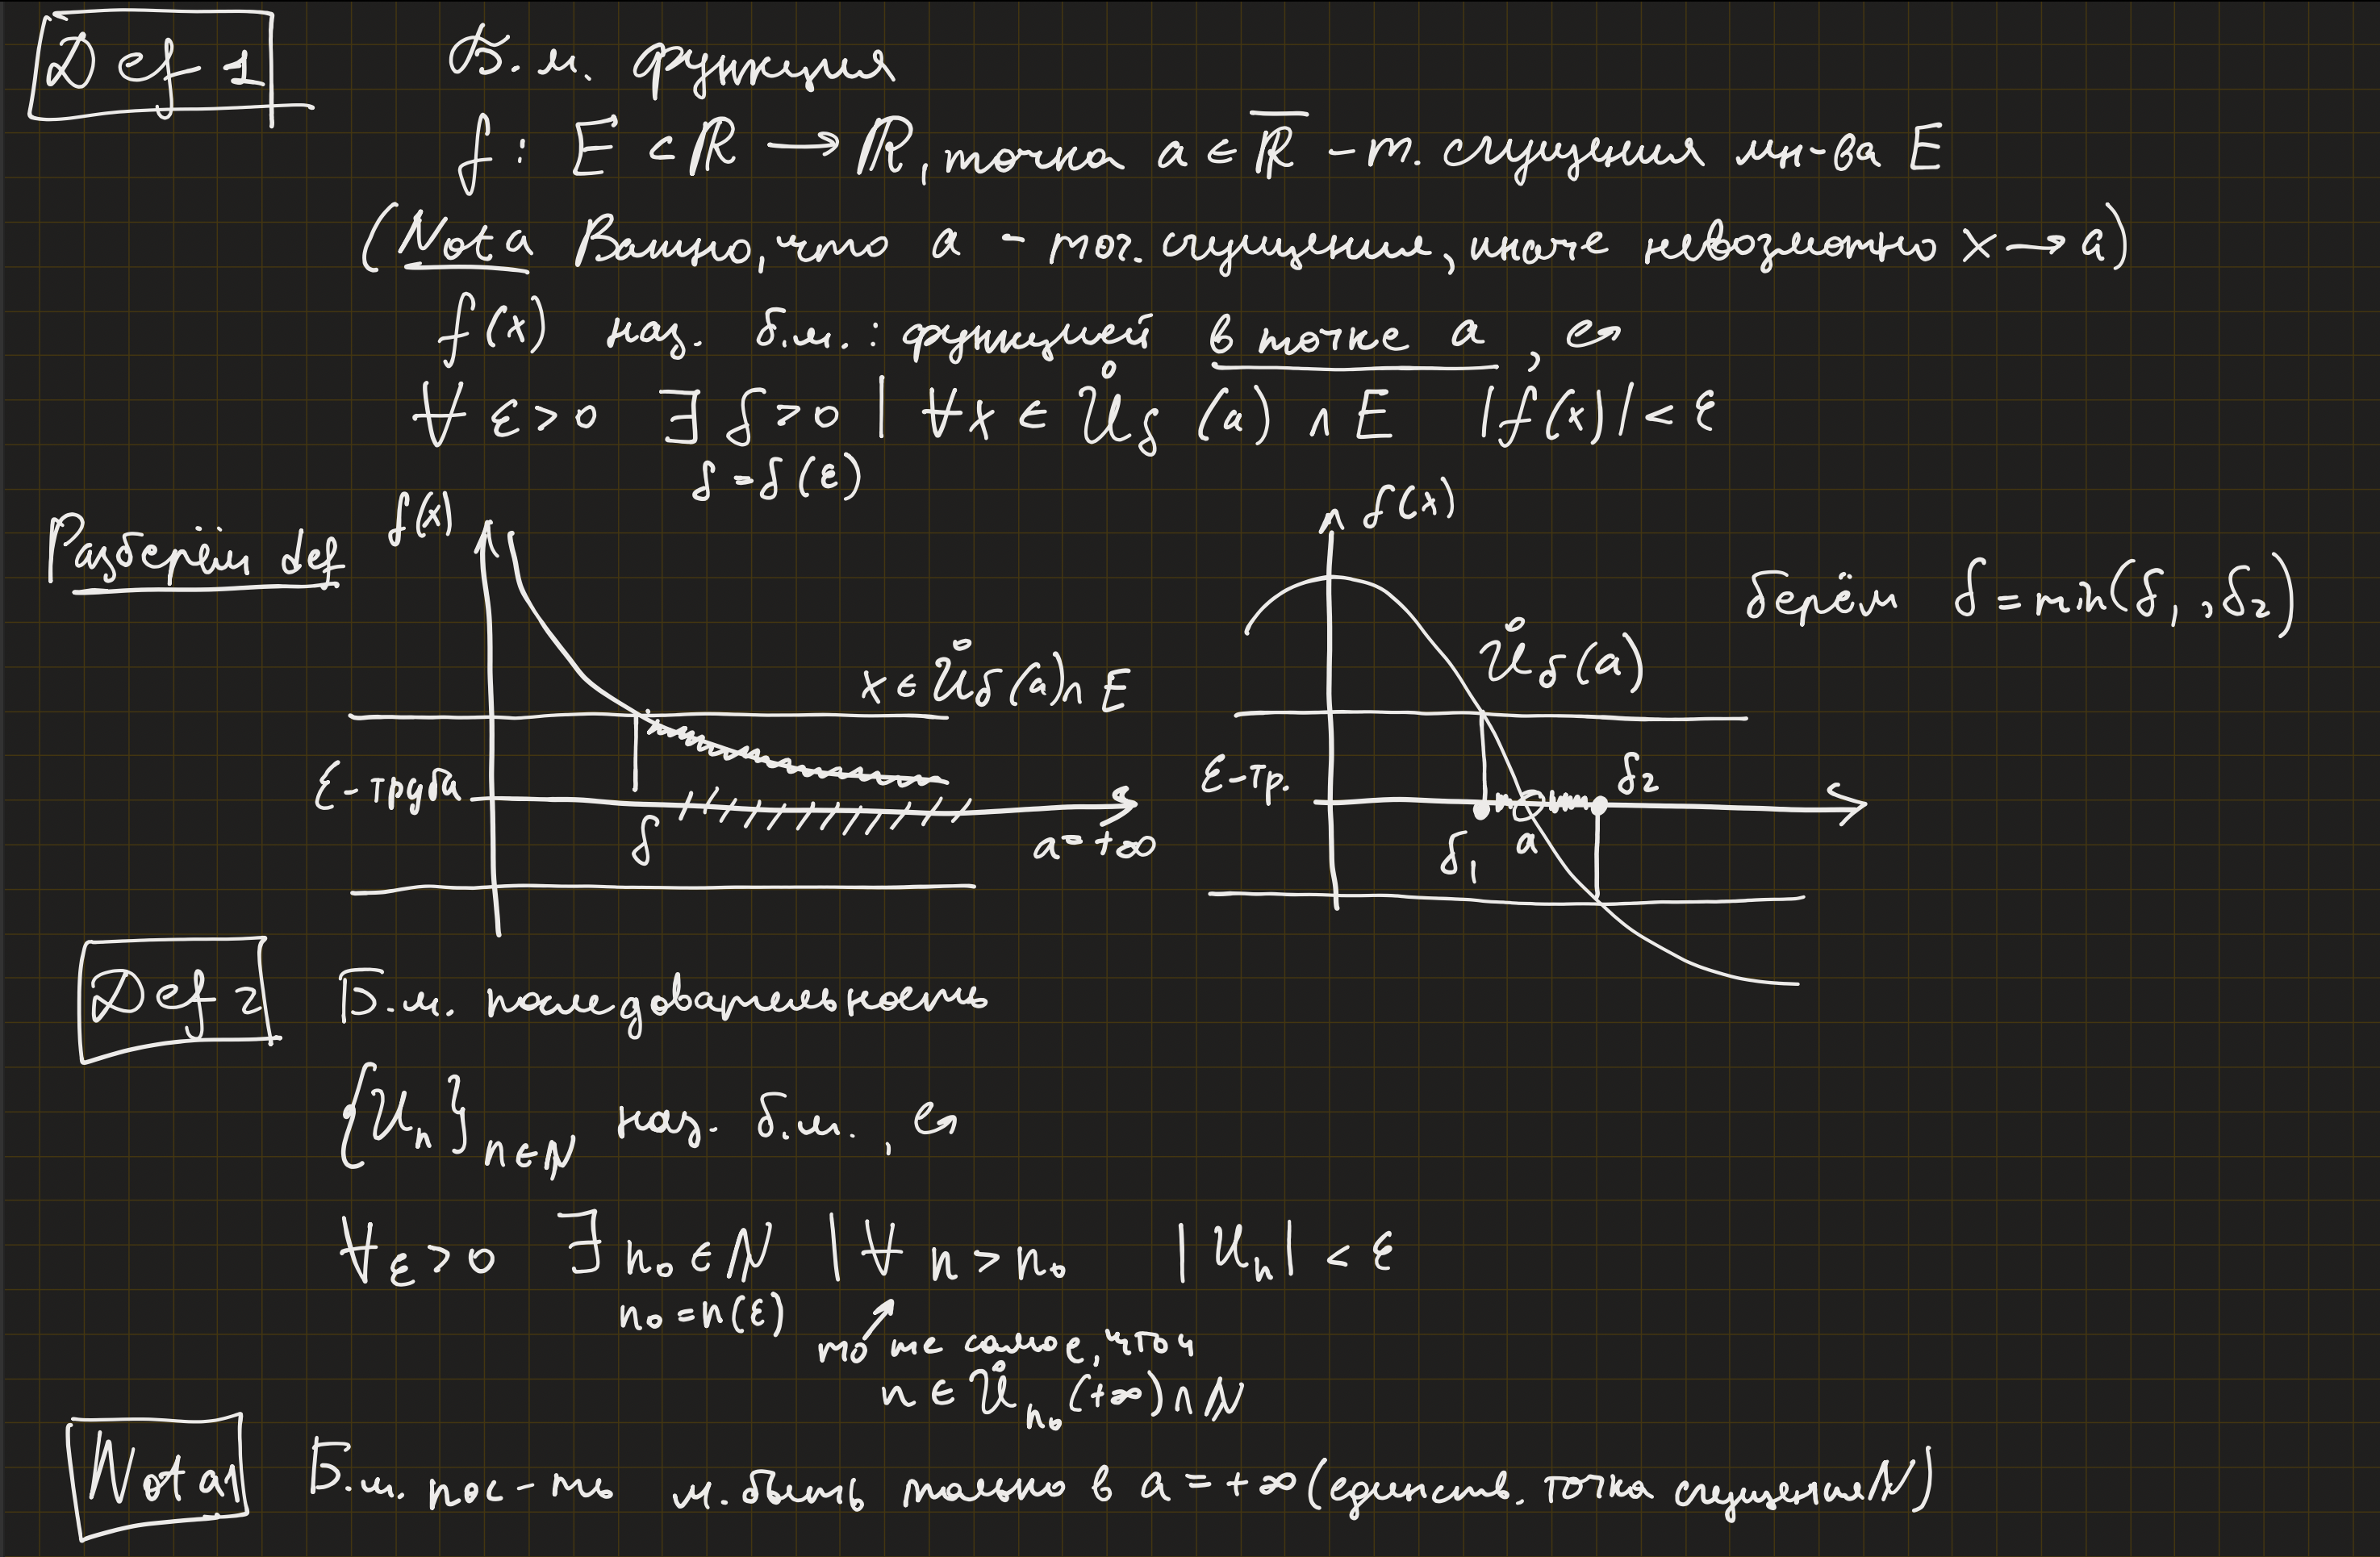 Def 1 Б.м. функция
f: E ⊂ ℝ → ℝ, точка a ∈ ℝ̅ – т. сгущения мн-ва E
(Nota Важно, что a – точ. сгущения, иначе невозможно x → a)
f(x) наз. б.м.: функцией в точке a, если
∀ ε > 0 ∃ δ > 0 | ∀x ∈ Ů_δ (a) ∩ E |f(x)| < ε
δ = δ(ε)
Разберём def
f(x)
x ∈ Ů_δ(a) ∩ E
ε-труба
δ
a = +∞
f(x)
Ů_δ(a)
ε-тр.
δ₁
a
δ₂
берём δ = min(δ₁, δ₂)
Def 2 Б.м. последовательность
{U_n}_{n∈ℕ} наз. б.м., если
∀ε > 0 ∃ n₀ ∈ ℕ | ∀ n > n₀ |U_n| < ε
n₀ = n(ε)
то же самое, что и
n ∈ Ů_{n₀} (+∞) ∩ ℕ
Nota 1 Б.м. пос-ть м. быть только в a = +∞ (единств. точка сгущения ℕ)